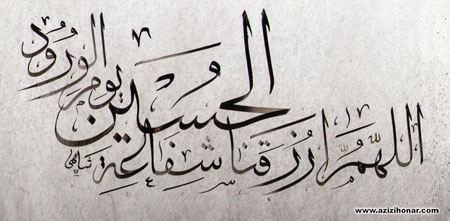 اللّهُمَّ ارْزُقْنا شَفاعَةَ
الْحُسَيْنِ يَوْمَ الْوُرُودِ
www.azizihonar.com